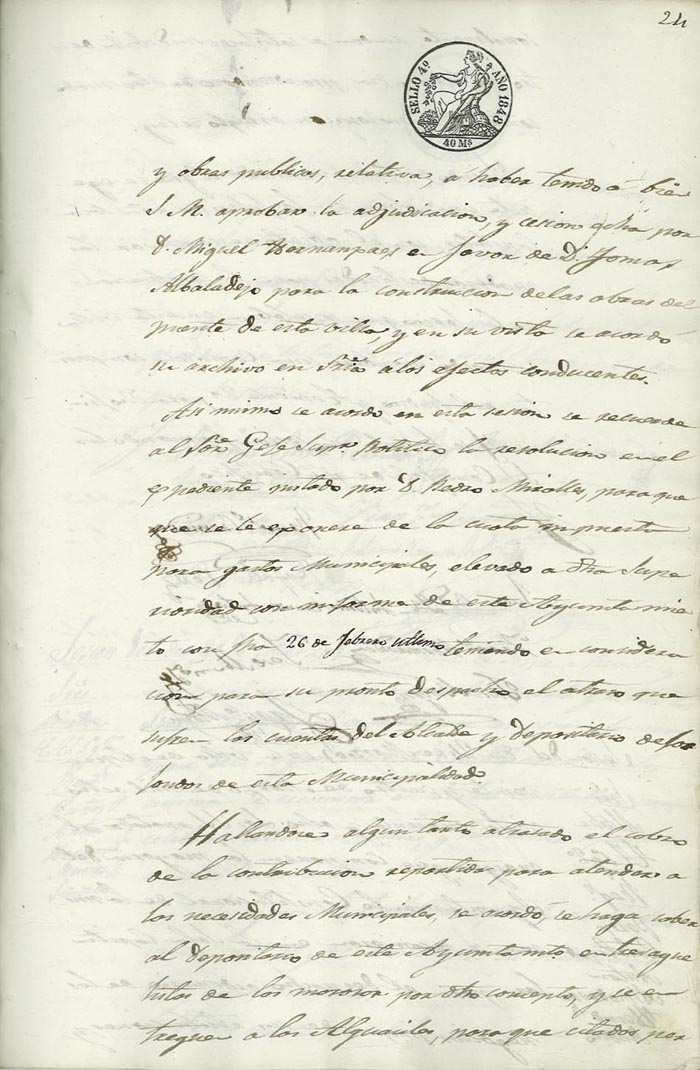 24
SELLO 4º AÑO 1848
40 Ms
y obras publicas, relativa, a haber tenido á bien
S. M. aprobar la adjudicacion, y cesion qe ha por
D. Miguel Hernanpaez en favor de D. Tomas
Albaladejo para la construccion de las obras del
puente de esta villa, y en su vista se acordó
su archivo en Sria á los efectos conducentes.
Asi mismo se acordo en esta sesion se recuerde
al Sor Gefe Supr. Politico la resolucion en el
expediente instado por D. Pedro Miralles, para que
que se le exonere de la cuota impuesta
para gastos Municipales, elevado a dha Supe
rioridad con informe de este Ayuntamien
to con fha 26 de febrero ultimo teniendo en considera
cion para su pronto despacho el atraso que
sufren las cuentas del Alcalde y Depositario de los
fondos de esta Municipalidad.
Hallandose algun tanto atrasado el cobro
de la contribucion repartida para atender a
las necesidades Municipales, se acordó se haga saber
al Depositario de este Ayuntamto. entresaque
listas de los morosos por dho concepto, y se en
treguen a los Alguaciles, para que citados por